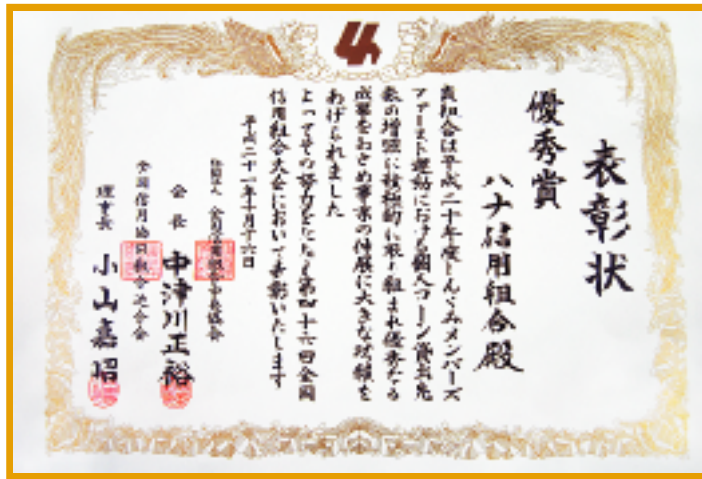 表彰状
優秀賞
ハナ信用組合殿
貴組合は平成二十年度しんくみメンバーズ
ファースト運動における個人ローン貸出先
数の増強に積極的に取り組まれ優秀なる
成果をおさめ事業の伸展に大きな功績を
あげられました
よってその努力をたたえ第四十六回全国
信用組合大会において表彰いたします
平成二十一年十月十六日
社団法人 全国信用組合中央協会
会長 中津川正裕
全国信用協同組合連合会
理事長 小山嘉昭